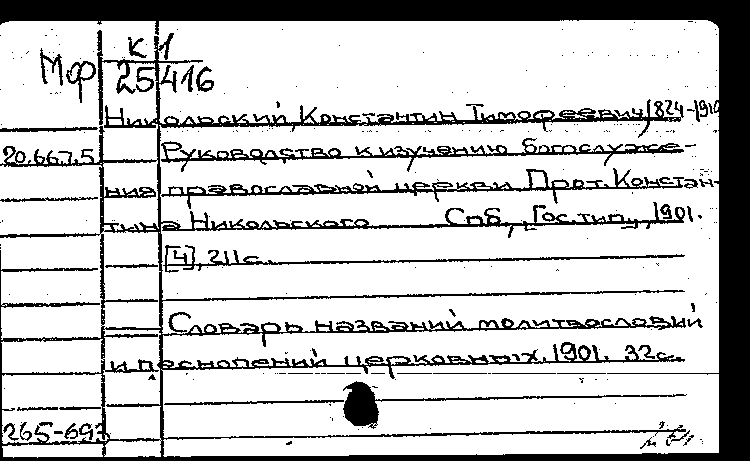 К 1
Мф 25 416
Никольский, Константин Тимофеевич, 1824-1910
20.667.5 Руководство к изучению богослуже-
ния православной церкви Прот. Констан-
тина Никольского Спб., Гос. тип., 1901.
[4], 211 с.
Словарь названий молитвословий
и песнопений церковных. 1901. 32 с.
265-693